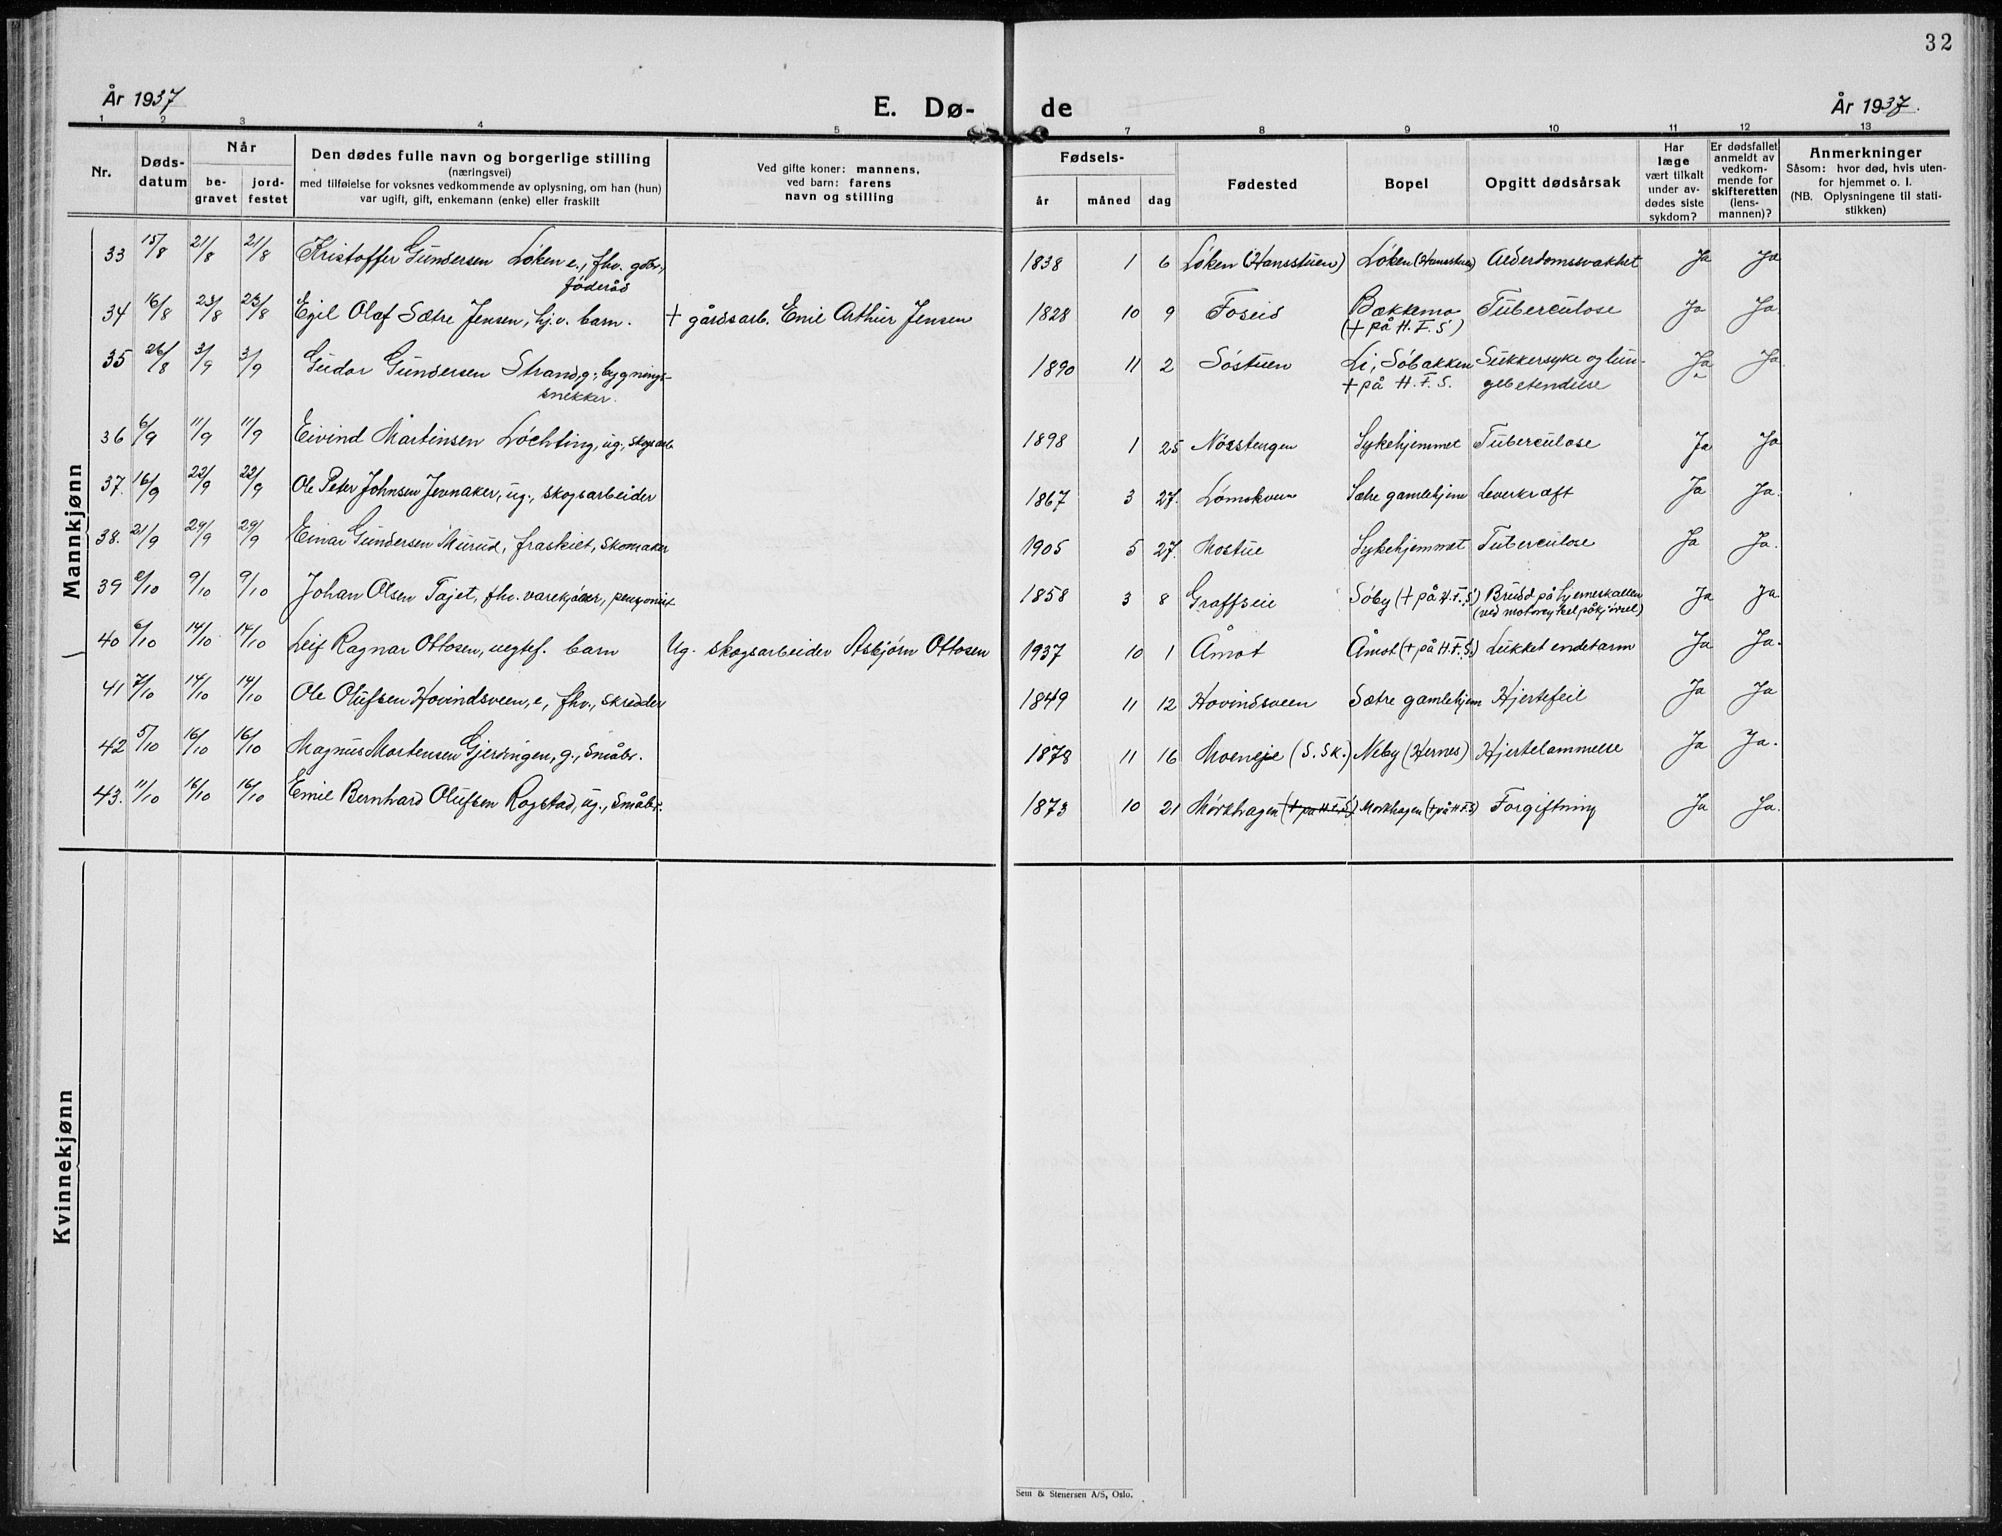 32
År 1937
E. Dø- de
År 1937.
1 2 3 4 5 7 8 9 10 11 12 13
Nr.
Døds-
datum
Når
be-
gravet
jord-
festet
Den dødes fulle navn og borgerlige stilling
(næringsvei)
med tilføielse for voksnes vedkommende av oplysning, om han (hun)
var ugift, gift, enkemann (enke) eller fraskilt
Ved gifte koner: mannens,
ved barn: farens
navn og stilling
Fødsels-
år måned dag
Fødested
Bopel
Opgitt dødsårsak
Har
læge
vært tilkalt
under av-
dødes siste
sykdom?
Er dødsfallet
anmeldt av
vedkom-
mende for
skifteretten
(lens-
mannen)?
Anmerkninger
Såsom: hvor død, hvis uten-
for hjemmet o. l.
(NB. Oplysningene til stati-
stikken)
Mannkjønn
33 15/8 21/8 21/8 Kristoffer Gundersen Løken e., fhv. gdbr., 1838 1 6 Løken (Hansstuen) Løken (Hansstuen) Alderdomssvakhet Ja Ja
føderåd
34 16/8 23/8 23/8 Egil Olaf Sætre Jensen, hj.v. barn. + gårdsarb. Emil Arthur Jensen 1828 10 9 Foseid Bækkemo Tuberculose Ja Ja
(+ på H.F.S)
35 26/8 3/9 3/9 Gudor Gundersen Strand, g., bygnings- 1890 11 2 Søstuen Li, Søbakken Sukkersyke og lun- Ja Ja
snekker. + på H.F.S. gebetendelse
36 6/9 11/9 11/9 Eivind Martinsen Løchting, ug., skogsarb 1898 1 25 Sykehjemmet Tuberculose Ja Ja
37. 16/9 22/9 22/9 Ole Peter Johnsen Jevnaker, ug., skogsarbeider 1867 3 27. Sætre gamlehjem Leverkræft Ja Ja.
38. 21/9 29/9 29/9 Einar Gundersen Murud, fraskilt, skomaker 1905 5 27. Mostue Sykehjemmet Tuberculose Ja Ja.
39 2/10 9/10 9/10 Johan Olsen Tajet, fhv. varekjører, pensjonist 1858 3 8 Søby (+ på H.F.S.) Brudd på hjerneskallen Ja Ja
(ved motorsykkelpåkjørsel)
40 6/10 14/10 14/10 Leif Ragnar Ottosen, uegtef. barn Ug. skogsarbeider Asbjørn Ottosen 1937 10 1 Åmot Åmot (+ på H.F.S.) Lukket endetarm Ja Ja.
41 7/10 14/10 14/10 Ole Olufsen Hovindsveen, e, fhv., skredder 1849 11 12 Hovindsveen Sætre gamlehjem Hjertefeil Ja Ja
42 5/10 16/10 16/10 Magnus Mortensen Gjerdingen, g., småbr. 1878 11 16 Moeneie (S. Sk.) Neby (Hernes) Hjertelammelse Ja Ja.
43. 11/10 16/10 16/10 Emil Bernhard Olufsen Rogstad, ug., småbr. 1873 10 21 Mørkhagen (+ på H.F.S) Mørkhagen (+ på H.F.S) Forgiftning Ja Ja.
Kvinnekjønn
Sem & Stenersen A/S, Oslo.